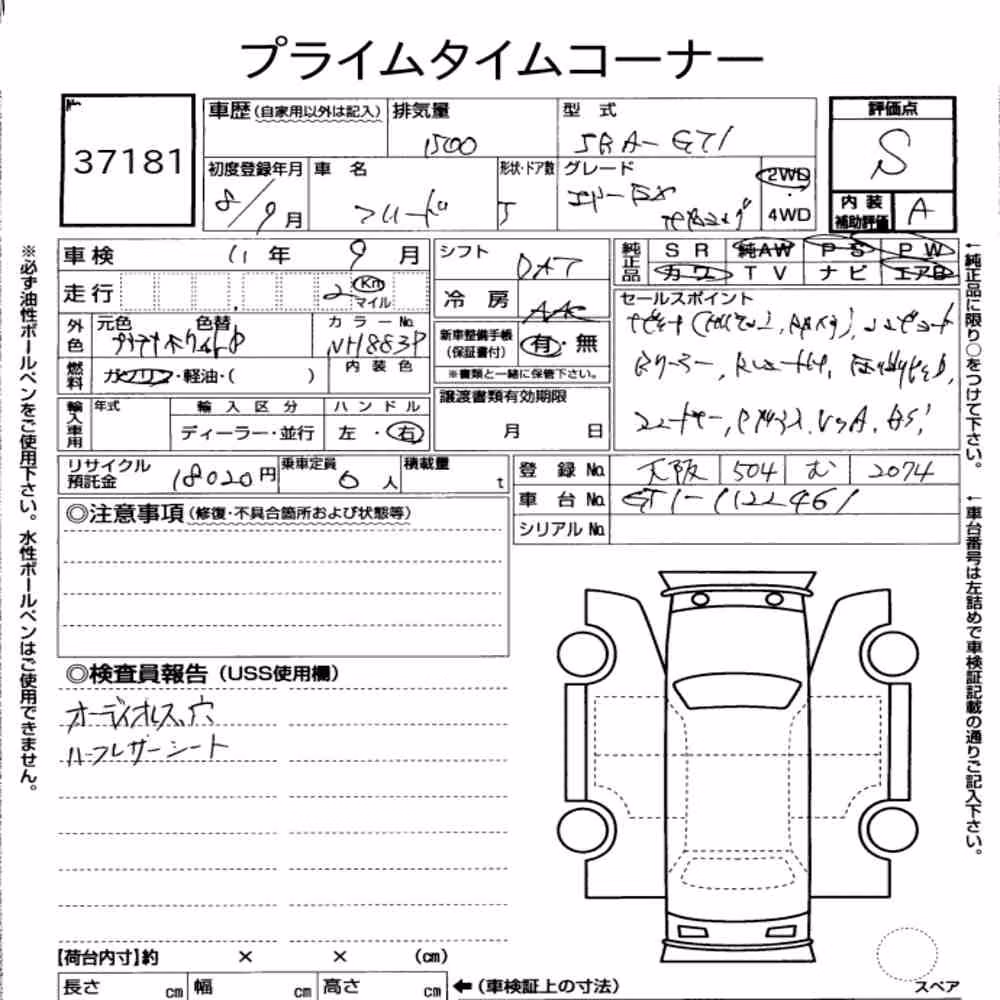 プライムタイムコーナー
37181
車歴(自家用以外は記入) 排気量 1500
型式 5BA-GT1
評価点 S
初度登録年月 8/9月
車名 フリード
形状・ドア数 5
グレード エアーEX
2WD・4WD
内装補助評価 A
車検 11年 9月
シフト DAT
純正品 SR 純AW PS PW
カワ TV ナビ エアB
走行 2 Km マイル
冷房 AAC
セールスポイント
外色 元色 色替
カラーNo. NH883P
新車整備手帳(保証書付) 有・無
※書類と一緒に保管下さい。
燃料 ガソリン・軽油・( )
内装色
輸入車用 年式 輸入区分 ディーラー・並行
ハンドル 左・右
譲渡書類有効期限 月 日
リサイクル預託金 18020円
乗車定員 6人
積載量 t
登録No. 大阪 504 む 2074
車台No. GT1-1122461
シリアルNo.
◎注意事項(修復・不具合箇所および状態等)
◎検査員報告(USS使用欄)
オーディオレス、穴
ハーフレザーシート
【荷台内寸】約 × × (cm)
長さ cm 幅 cm 高さ cm ←(車検証上の寸法)
スペア
※必ず油性ボールペンをご使用下さい。水性ボールペンはご使用できません。
←純正品に限り○をつけて下さい。
←車台番号は左詰めで車検証記載の通りご記入下さい。